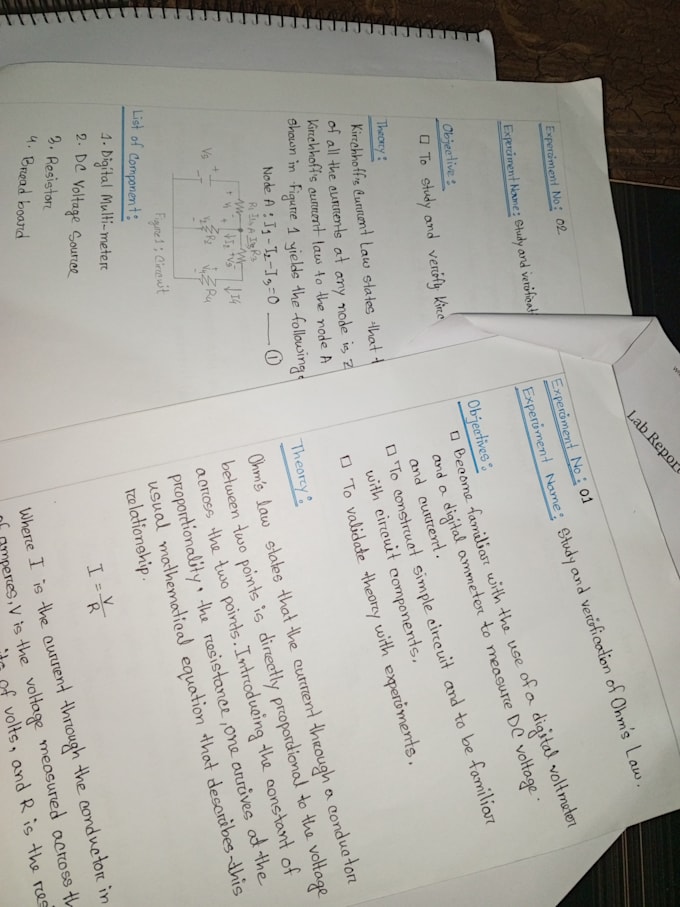 Lab Report
Experiment No: 01
Experiment Name: Study and verification of Ohm's Law.
Objectives:
□ Become familiar with the use of a digital voltmeter
and a digital ammeter to measure DC voltage
and current.
□ To construct simple circuit and to be familiar
with circuit components.
□ To validate theory with experiments.
Theory:
Ohm's law states that the current through a conductor
between two points is directly proportional to the voltage
across the two points. Introducing the constant of
proportionality, the resistance, one arrives at the
usual mathematical equation that describes this
relationship.
I = V/R
Where I is the current through the conductor in
of amperes, V is the voltage measured across th
of volts, and R is the res
Experiment No: 02
Experiment Name: Study and verificat
Objective:
□ To study and verify Kirc
Theory:
Kirchhoff's Current Law states that t
of all the currents at any node is z
Kirchhoff's current law to the node A
shown in figure 1 yields the following
Node A: I1 - I2 - I3 = 0 — ①
Vs + -
R1 I1 A I3 R3
+ V1 - ↓I2 + V3 - ↓I4
V2 R2 V4 R4
Figure 1: Circuit
List of Component:
1. Digital Multi-meter
2. DC Voltage Source
3. Resistor
4. Bread board